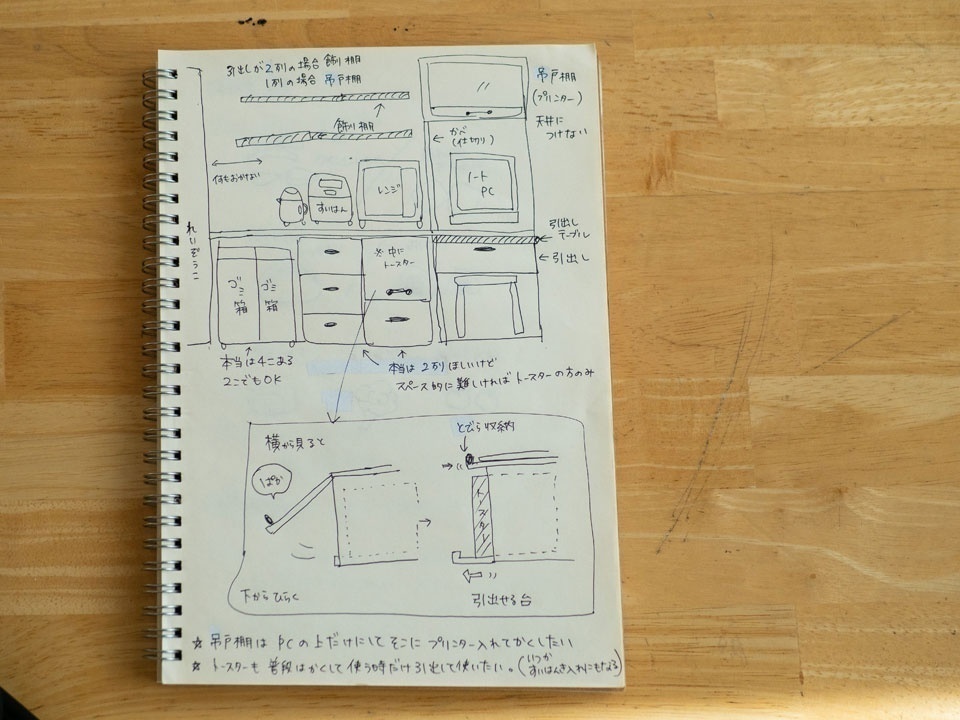 引出しが2列の場合 飾り棚
1列の場合 吊戸棚
吊戸棚
(プリンター)
天井に
つけない
飾り棚
かべ
(仕切り)
何もおかない
すいはん
レンジ
ノート
PC
れいぞうこ
引出し
テーブル
引出し
※中に
トースター
ゴミ箱
ゴミ箱
本当は4こある
2こでもOK
本当は2列ほしいけど
スペース的に難しければトースターの方のみ
横から見ると
とびら収納
ぱか
トースター
下からひらく
引出せる台
☆ 吊戸棚は PCの上だけにして そこに プリンター入れてかくしたい
☆ トースターも 普段はかくして 使う時だけ 引出して使いたい。(いつか
すいはんき入れにもなる)